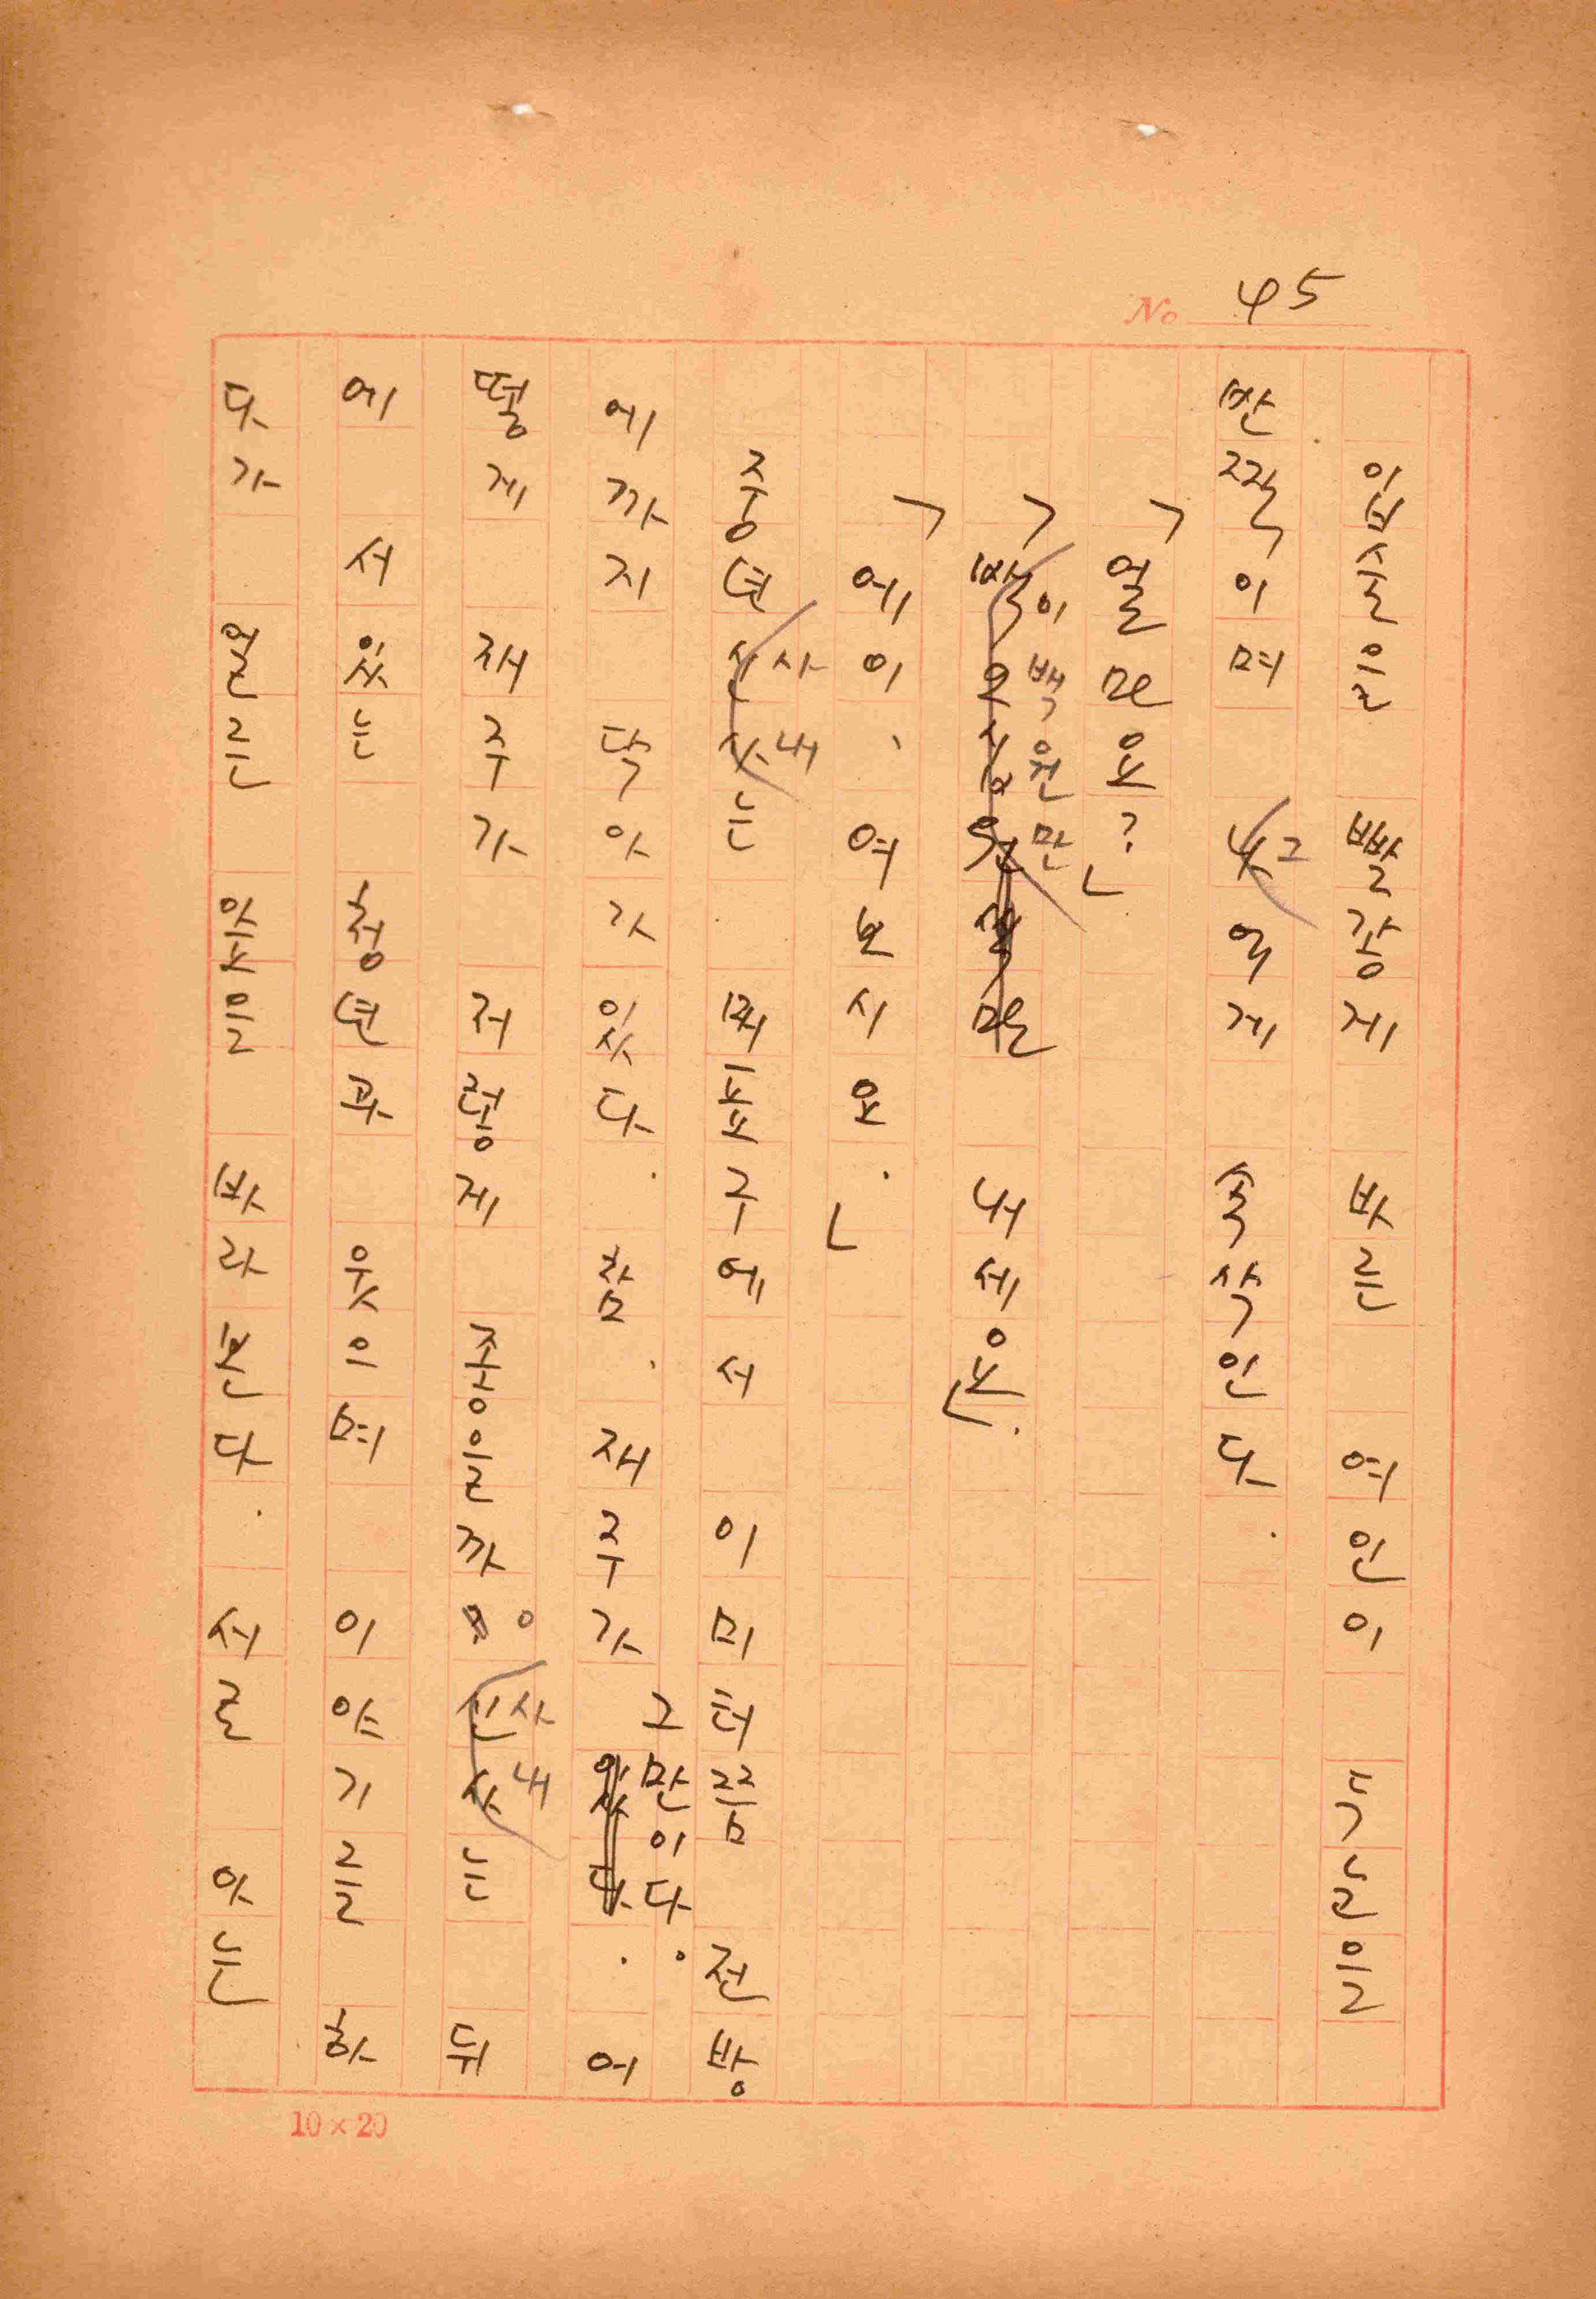 No 45
입술을 빨갛게 바른 여인이 두 눈을
반짝이며 그윽게 속삭인다.
「얼만요?」
「이백원만 내세요」.
「에이, 여보시요.」
중년 사내는 매표구에서 이미터쯤 전방
에까지 닥아가 있다. 참, 재주가 그만이다. 어
떻게 재주가 저렇게 좋을까. 사내는 뒤
에 서 있는 청년과 웃으며 이야기를 하
다가 얼른 앞을 바라본다. 서로 아는
10×20